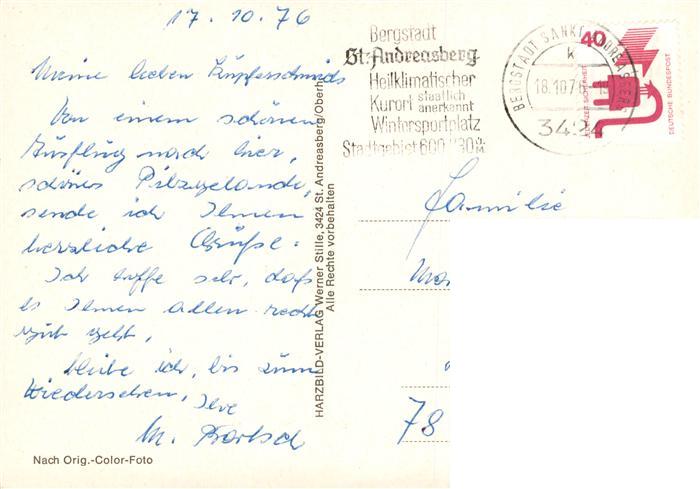 17. 10. 76
Meine lieben Kupferschmids
Von einem schönen
Ausflug nach hier,
schönes Pilzgelände,
sende ich Ihnen
herzliche Grüße.
Ich hoffe sehr, daß
es Ihnen allen recht
gut geht,
bleibe ich, bis zum
Wiedersehen, Ihre
M.
Nach Orig.-Color-Foto
HARZBILD-VERLAG Werner Stille, 3424 St. Andreasberg/Oberharz
Alle Rechte vorbehalten
Bergstadt
St. Andreasberg
Heilklimatischer
Kurort staatlich anerkannt
Wintersportplatz
Stadtgebiet 600
BERGSTADT SANKT ANDREASBERG
k
18.10.76
3424
40
DEUTSCHE BUNDESPOST
Familie
78